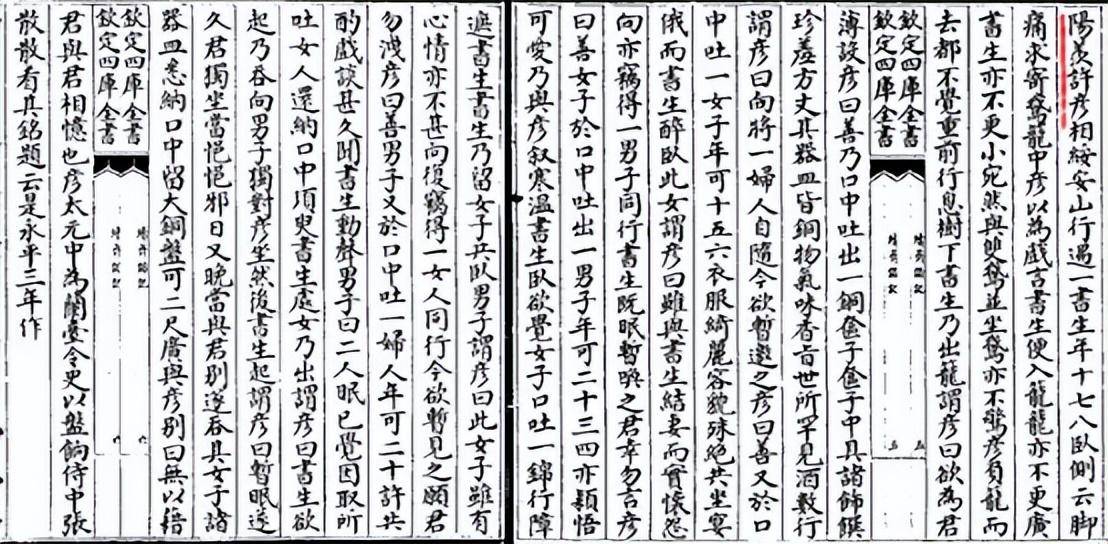 陽羨許彦相綏安山行遇一書生年十七八臥側云脚
痛求寄鵞籠中彦以為戲言書生便入籠籠亦不更廣
書生亦不更小宛然與雙鵞並坐鵞亦不驚彦負籠而
去都不覺重前行息樹下書生乃出籠謂彦曰欲為君
欽定四庫全書
欽定四庫全書
薄設彦曰善乃口中吐出一銅奩子奩子中具諸飾饌
珍羞方丈其器皿皆銅物氣味香旨世所罕見酒數行
謂彦曰向將一婦人自隨今欲暫邀之彦曰善又於口
中吐一女子年可十五六衣服綺麗容貌殊絶共坐宴
俄而書生醉臥此女謂彦曰雖與書生結妻而實懷怨
向亦竊得一男子同行書生既眠暫喚之君幸勿言彦
曰善女子於口中吐出一男子年可二十三四亦穎悟
可愛乃與彦叙寒溫書生臥欲覺女子口吐一錦行障
遮書生書生乃留女子共臥男子謂彦曰此女子雖有
心情亦不甚向復竊得一女人同行今欲暫見之願君
勿洩彦曰善男子又於口中吐一婦人年可二十許共
酌戲談甚久聞書生動聲男子曰二人眠已覺因取所
吐女人還納口中須臾書生處女乃出謂彦曰書生欲
起乃吞向男子獨對彦坐然後書生起謂彦曰暫眠遂
久君獨坐當悒悒邪日又晚當與君别遂吞其女子諸
器皿悉納口中留大銅盤可二尺廣與彦别曰無以藉
欽定四庫全書
欽定四庫全書
君與君相憶也彦太元中為蘭臺令史以盤餉侍中張
散散看其銘題云是永平三年作